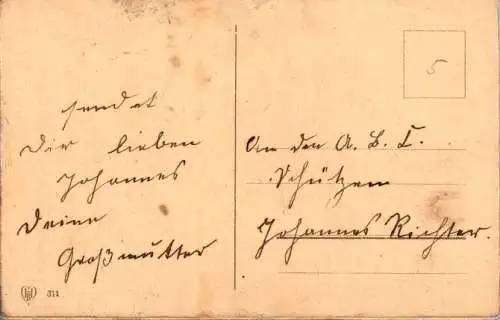 sendet
Dir lieben
Johannes
Deine
Großmutter
An den A. B. C.
Schützen
Johannes Richter.
5
311